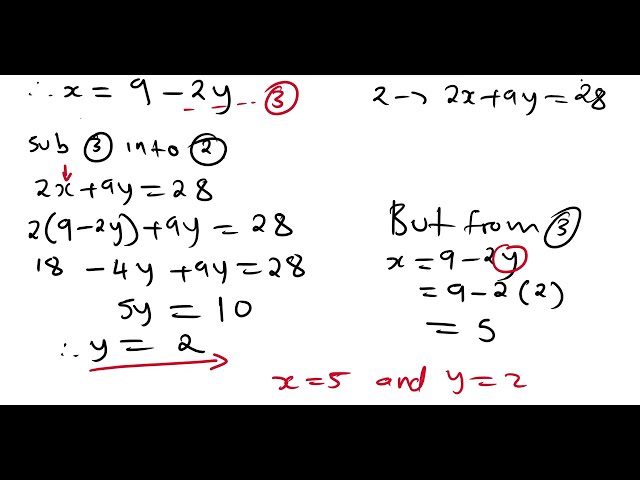 ∴ x = 9 - 2y ... ③
2 → 2x + 9y = 28
sub ③ into ②
2x + 9y = 28
2(9-2y) + 9y = 28
18 - 4y + 9y = 28
5y = 10
∴ y = 2
But from ③
x = 9 - 2y
= 9 - 2(2)
= 5
x = 5 and y = 2